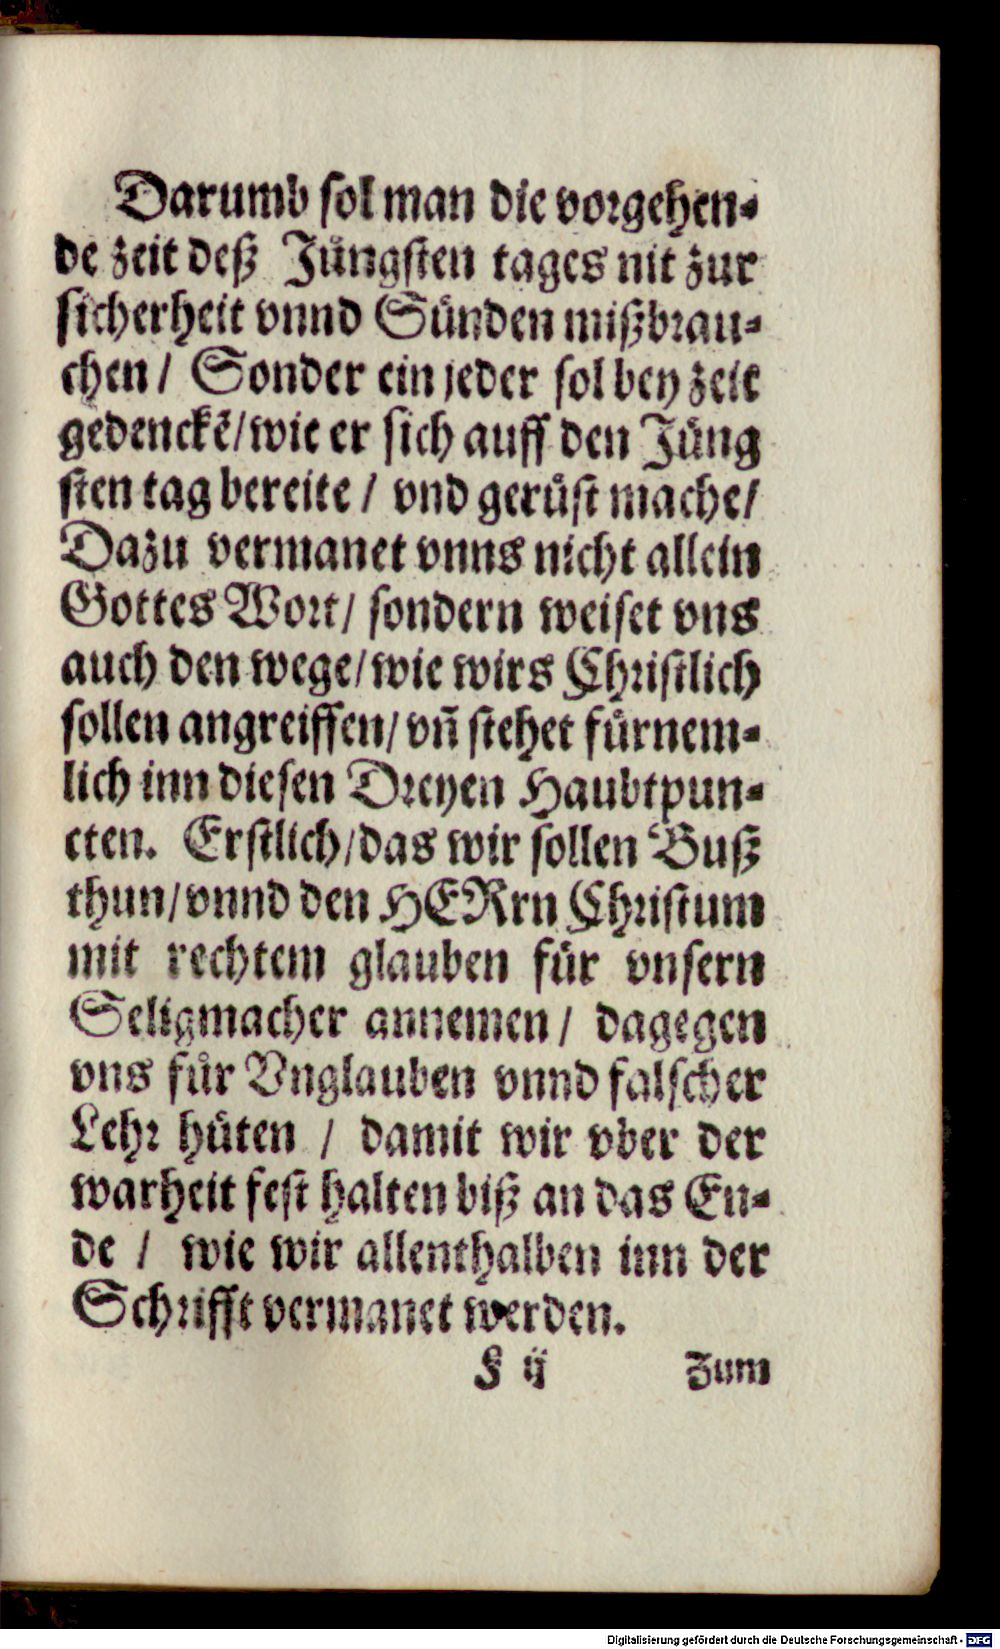 Darumb sol man die vorgehen-
de zeit deß Jüngsten tages nit zur
sicherheit vnnd Sünden mißbrau-
chen / Sonder ein jeder sol bey zeit
gedenckẽ/wie er sich auff den Jüng
sten tag bereite / vnd gerüst mache/
Dazu vermanet vnns nicht allein
Gottes Wort/ sondern weiset vns
auch den wege/wie wirs Christlich
sollen angreiffen/ vñ stehet fürnem-
lich inn diesen Dreyen Haubtpun-
cten. Erstlich/das wir sollen Buß
thun/vnnd den HERrn Christum
mit rechtem glauben für vnsern
Seligmacher annemen / dagegen
vns für Vnglauben vnnd falscher
Lehr hüten / damit wir vber der
warheit fest halten biß an das En-
de / wie wir allenthalben inn der
Schrifft vermanet werden.
F ij Zum
Digitalisierung gefördert durch die Deutsche Forschungsgemeinschaft - DFG